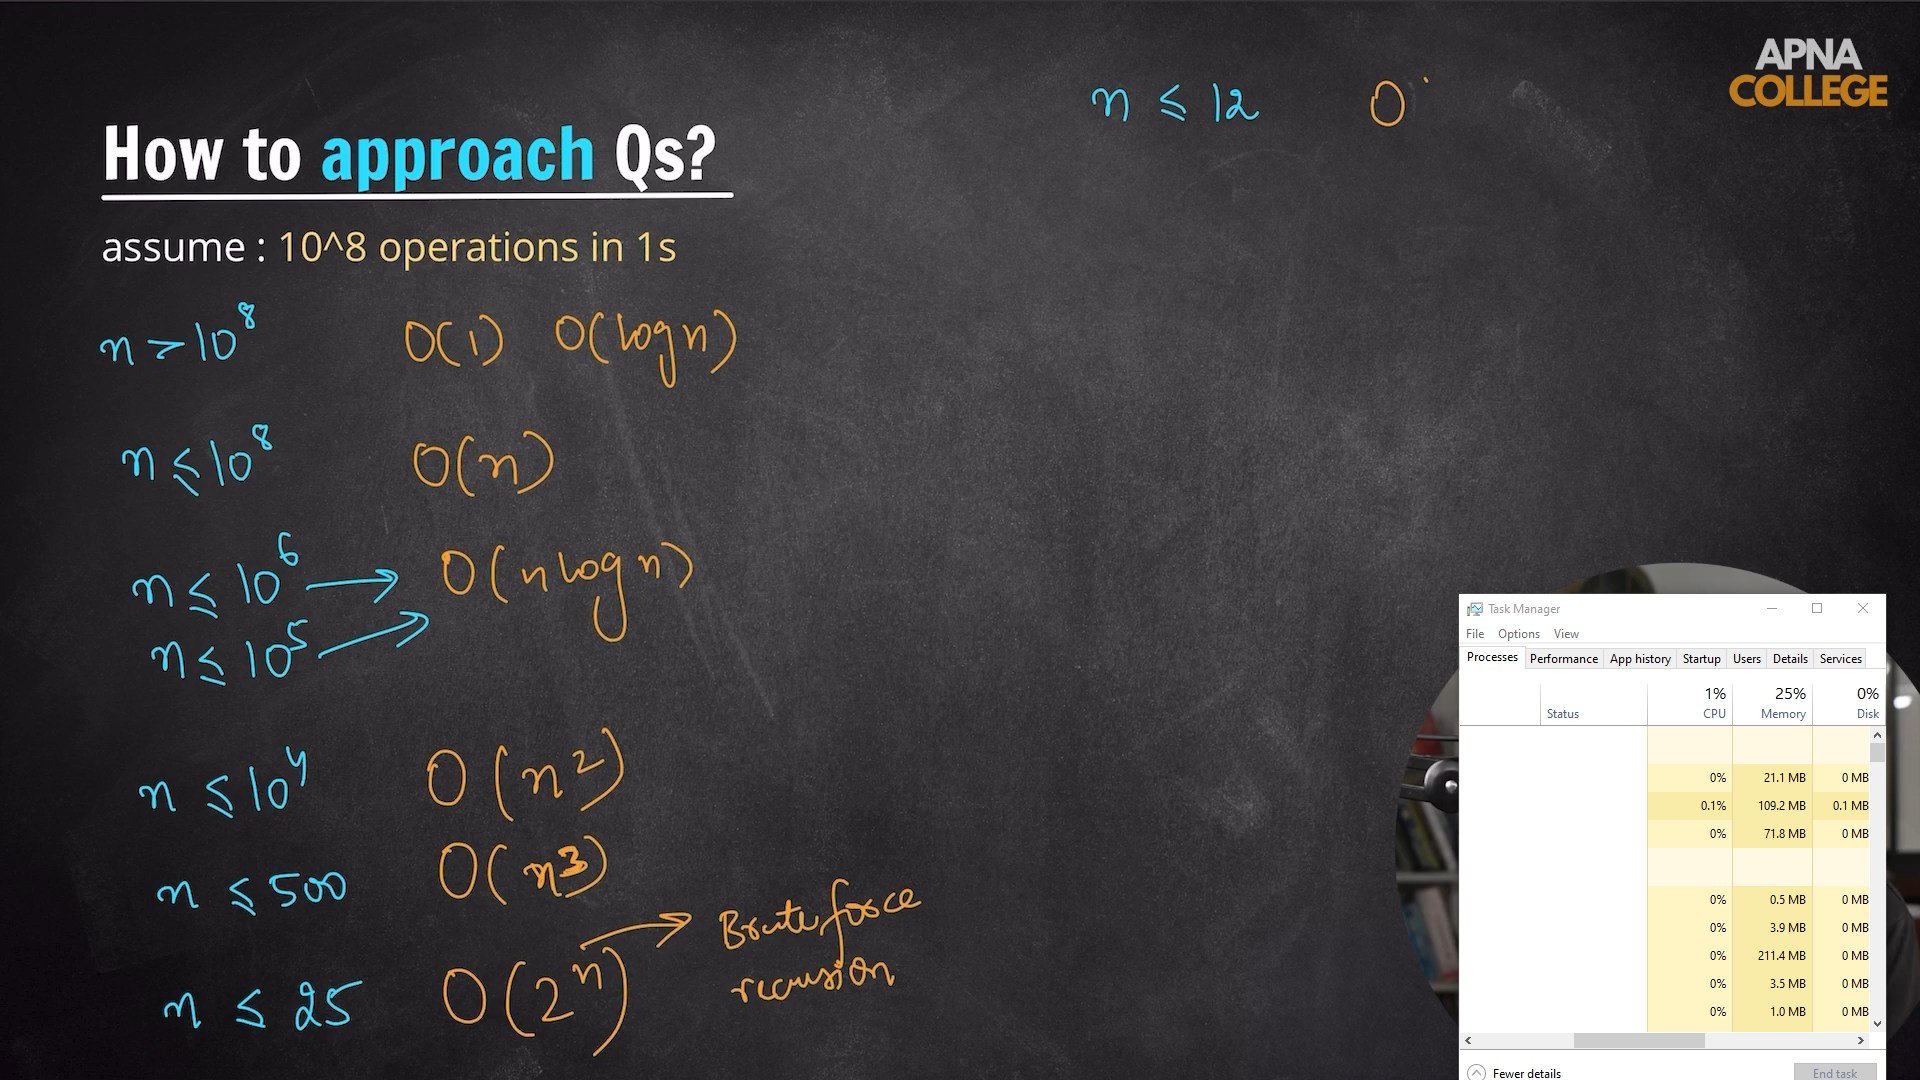 APNA
COLLEGE
n ≤ 12 O
How to approach Qs?
assume : 10^8 operations in 1s
n > 10^8 O(1) O(log n)
n ≤ 10^8 O(n)
n ≤ 10^6 → O(n log n)
n ≤ 10^5 →
n ≤ 10^4 O(n^2)
n ≤ 500 O(n^3)
n ≤ 25 O(2^n) → Brute force
recursion
Task Manager
File Options View
Processes Performance App history Startup Users Details Services
1% 25% 0%
Status CPU Memory Disk
0% 21.1 MB 0 MB
0.1% 109.2 MB 0.1 MB
0% 71.8 MB 0 MB
0% 0.5 MB 0 MB
0% 3.9 MB 0 MB
0% 211.4 MB 0 MB
0% 3.5 MB 0 MB
0% 1.0 MB 0 MB
Fewer details End task